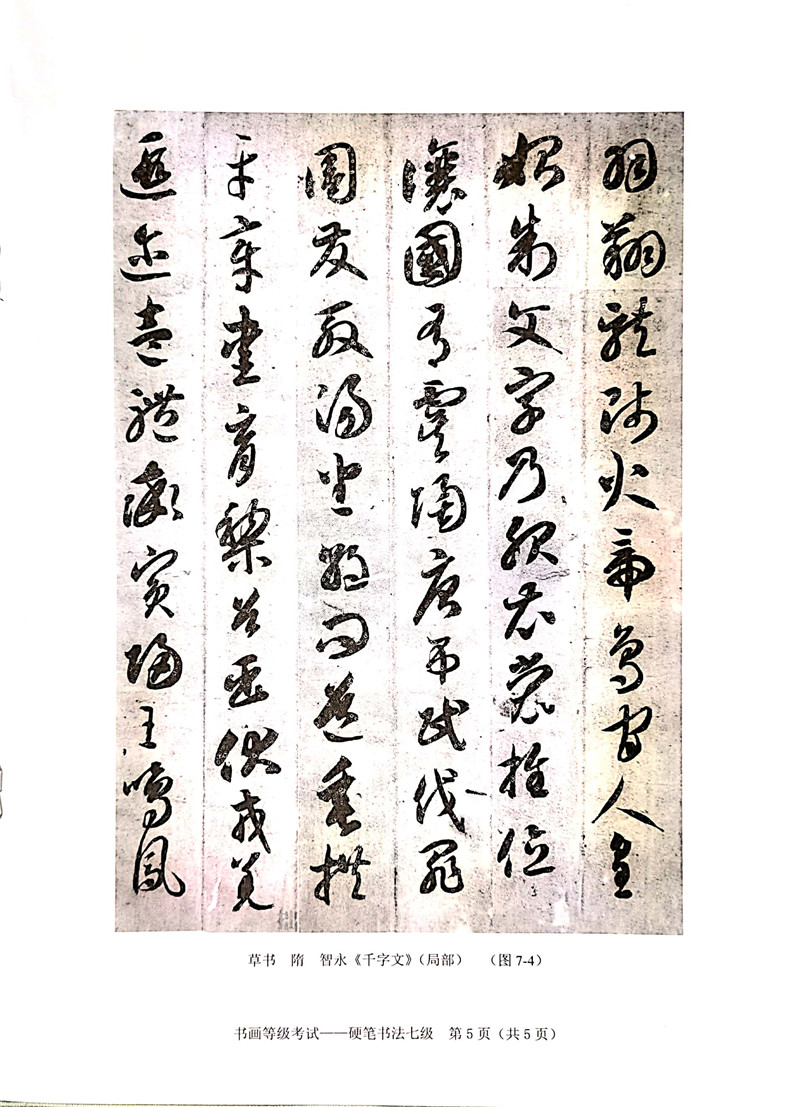 羽翔龍師火帝鳥官人皇
始制文字乃服衣裳推位
讓國有虞陶唐弔民伐罪
周發殷湯坐朝問道垂拱
平章愛育黎首臣伏戎羌
遐邇壹體率賓歸王鳴鳳
草书 隋 智永《千字文》（局部） （图7-4）
书画等级考试——硬笔书法七级 第5页（共5页）